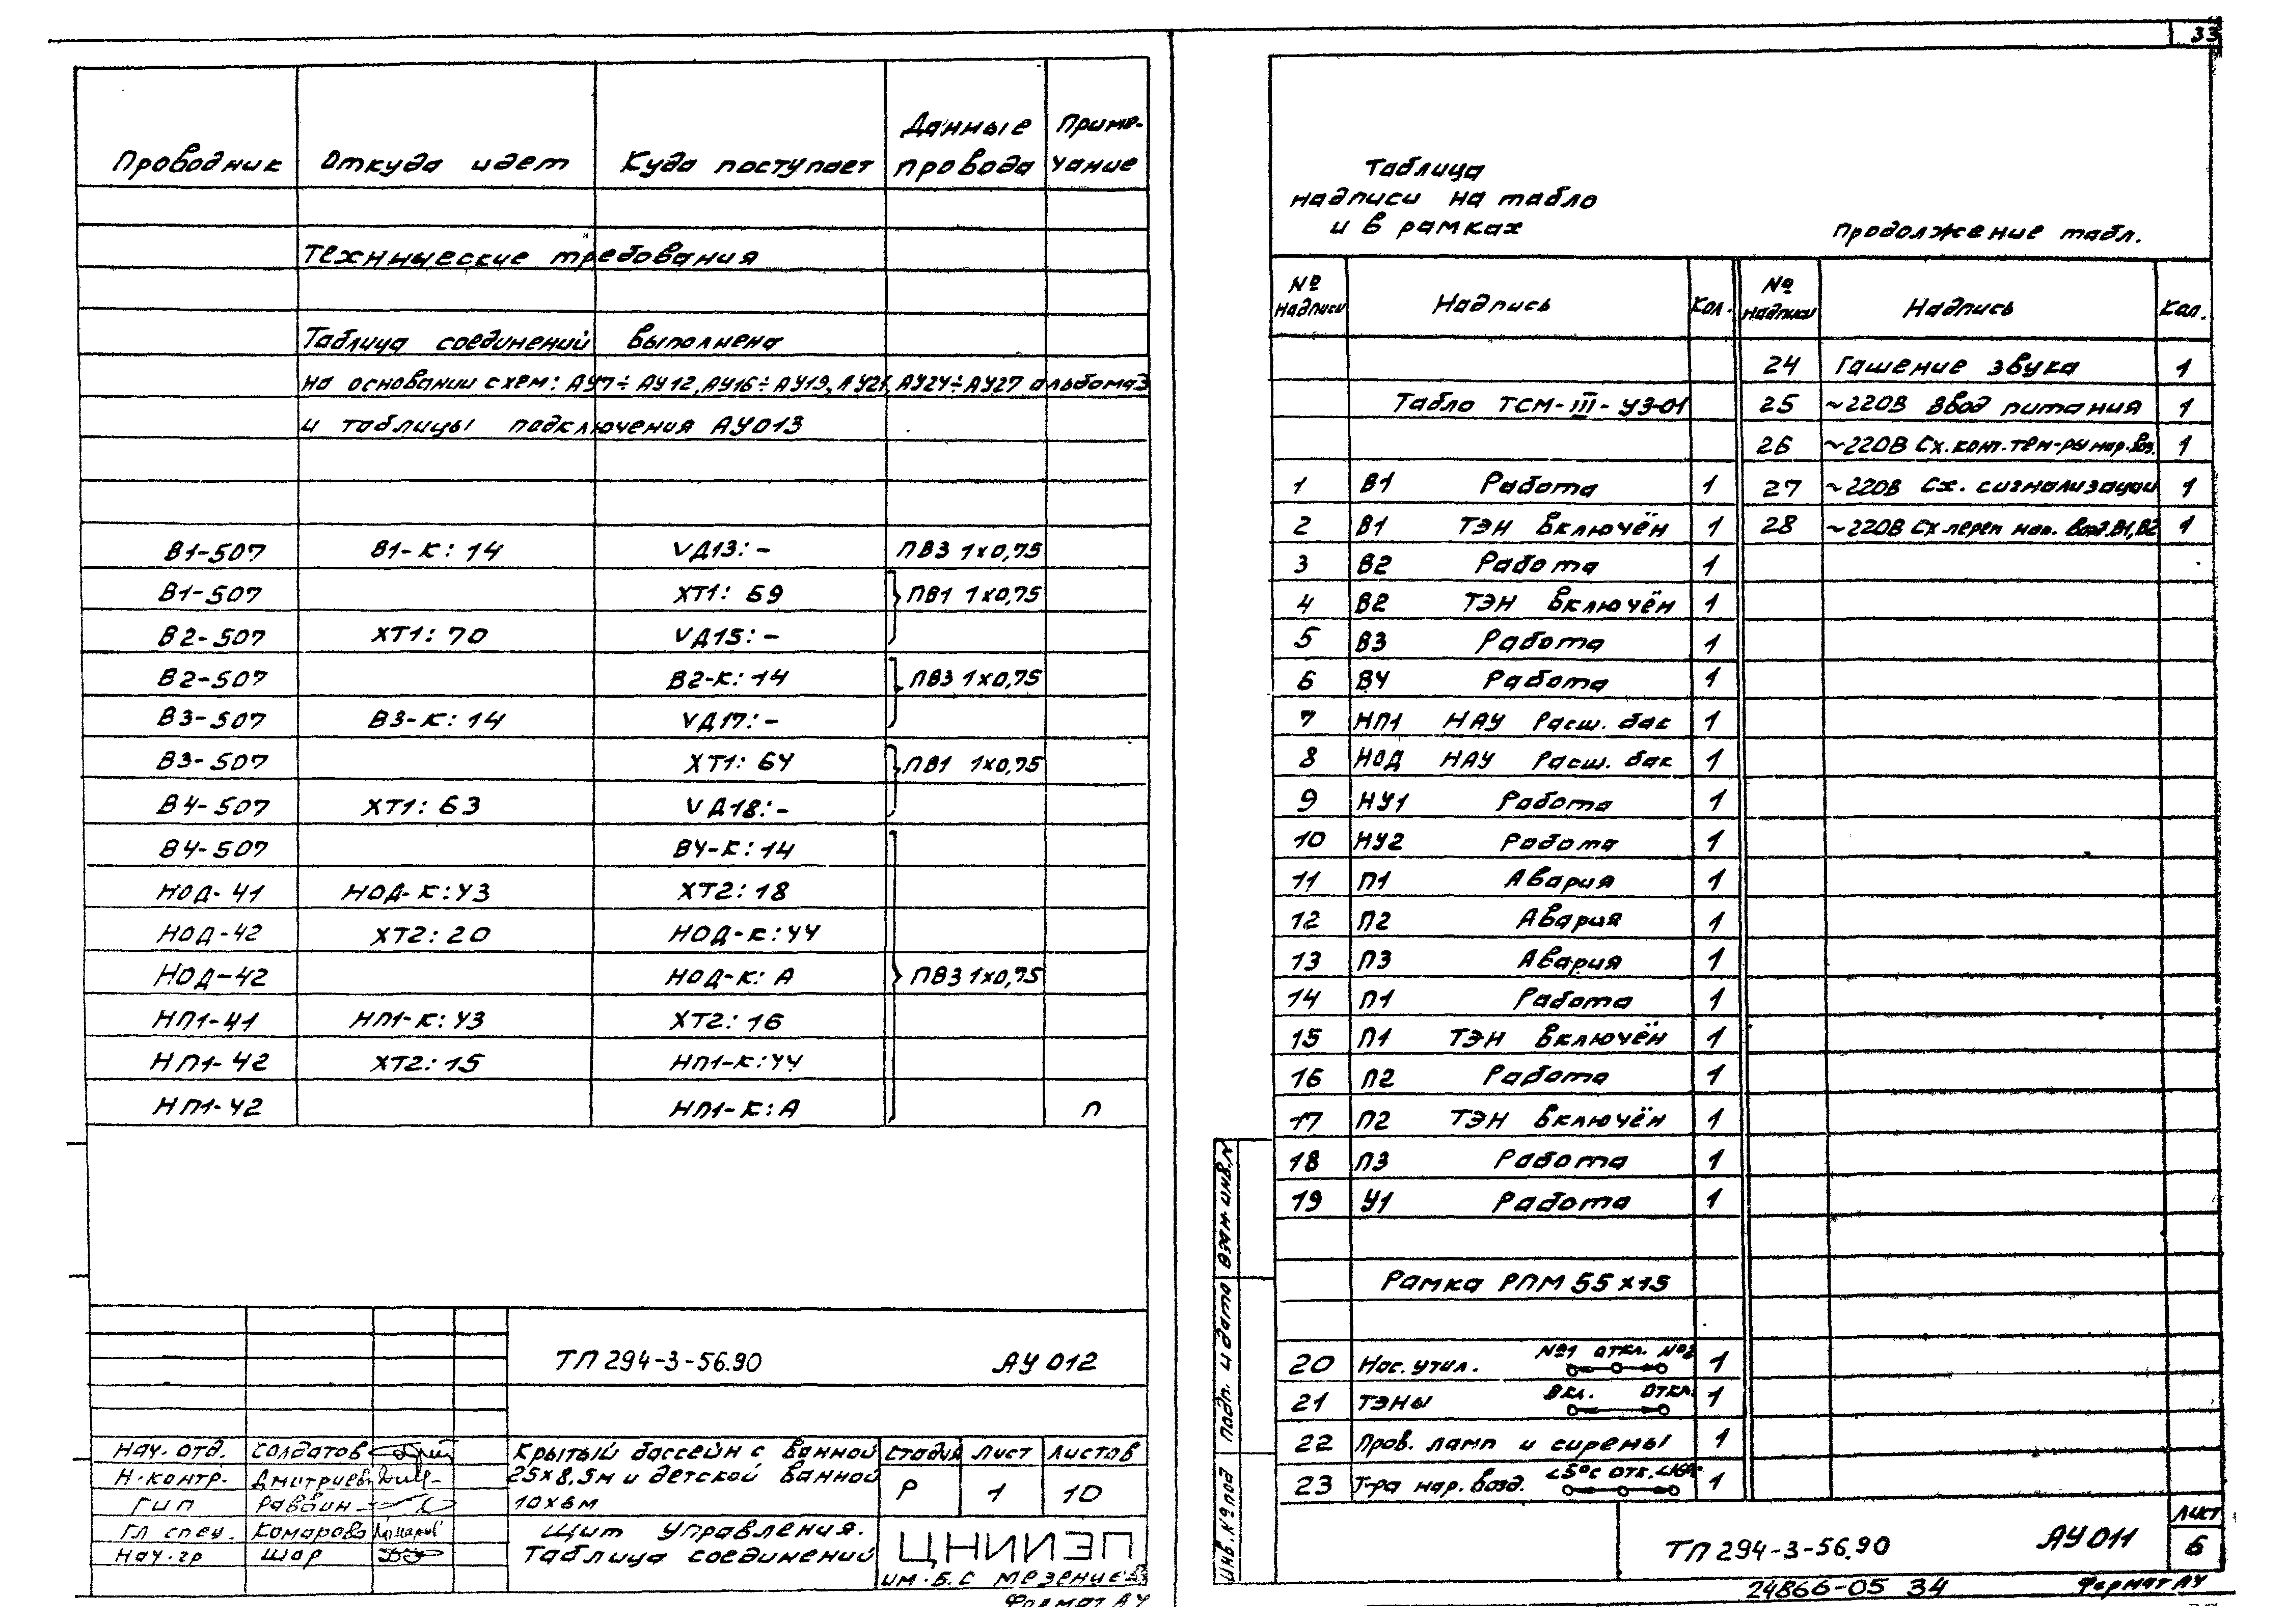 33
Проводник Откуда идет Куда поступает Данные провода Приме-чание
Технические требования
Таблица соединений выполнена
на основании схем: АУ7÷АУ12, АУ16÷АУ19, АУ21, АУ24÷АУ27 альбома3
и таблицы подключения АУ013
В1-507 В1-К:14 VД13:- ПВ3 1х0,75
В1-507 ХТ1:69 ПВ1 1х0,75
В2-507 ХТ1:70 VД15:-
В2-507 В2-К:14 ПВ3 1х0,75
В3-507 В3-К:14 VД17:-
В3-507 ХТ1:64 ПВ1 1х0,75
В4-507 ХТ1:63 VД18:-
В4-507 В4-К:14
НОД-41 НОД-К:43 ХТ2:18
НОД-42 ХТ2:20 НОД-К:44
НОД-42 НОД-К:А ПВ3 1х0,75
НП1-41 НП1-К:43 ХТ2:16
НП1-42 ХТ2:15 НП1-К:44
НП1-42 НП1-К:А п
ТП 294-3-56.90 АУ 012
Нач. отд. Солдатов
Н.контр.
ГИП Раввин
Гл спец. Комарова
Нач.гр Шор
Крытый бассейн с ванной
25х8,5м и детской ванной
10х6м
Стадия Лист Листов
Р 1 10
Щит управления.
Таблица соединений
ЦНИИЭП
им. Б.С Мезенцева
Формат А4
Таблица
надписи на табло
и в рамках
продолжение табл.
№ надписи Надпись Кол. № надписи Надпись Кол.
24 Гашение звука 1
Табло ТСМ-III-УЗ-01 25 ~220В Ввод питания 1
26 ~220В Сх.конт.тем-ры нар.воз. 1
1 В1 Работа 1 27 ~220В Сх. сигнализации 1
2 В1 ТЭН включён 1 28 ~220В Сх В1,В2 1
3 В2 Работа 1
4 В2 ТЭН включён 1
5 В3 Работа 1
6 В4 Работа 1
7 НП1 НАУ Расш. бак 1
8 НОД НАУ Расш. бак 1
9 НУ1 Работа 1
10 НУ2 Работа 1
11 П1 Авария 1
12 П2 Авария 1
13 П3 Авария 1
14 П1 Работа 1
15 П1 ТЭН включён 1
16 П2 Работа 1
17 П2 ТЭН включён 1
18 П3 Работа 1
19 У1 Работа 1
Рамка РПМ 55х15
20 Нас. утил. №1 откл. №2 1
21 ТЭНы Вкл. Откл. 1
22 Пров. ламп и сирены 1
23 Т-ра нар. возд. <5°С отк. 1
Взам.инв.№
Подп. и дата
Инв.№ под
ТП 294-3-56.90 АУ 011
Лист
6
24866-05 34 Формат А4